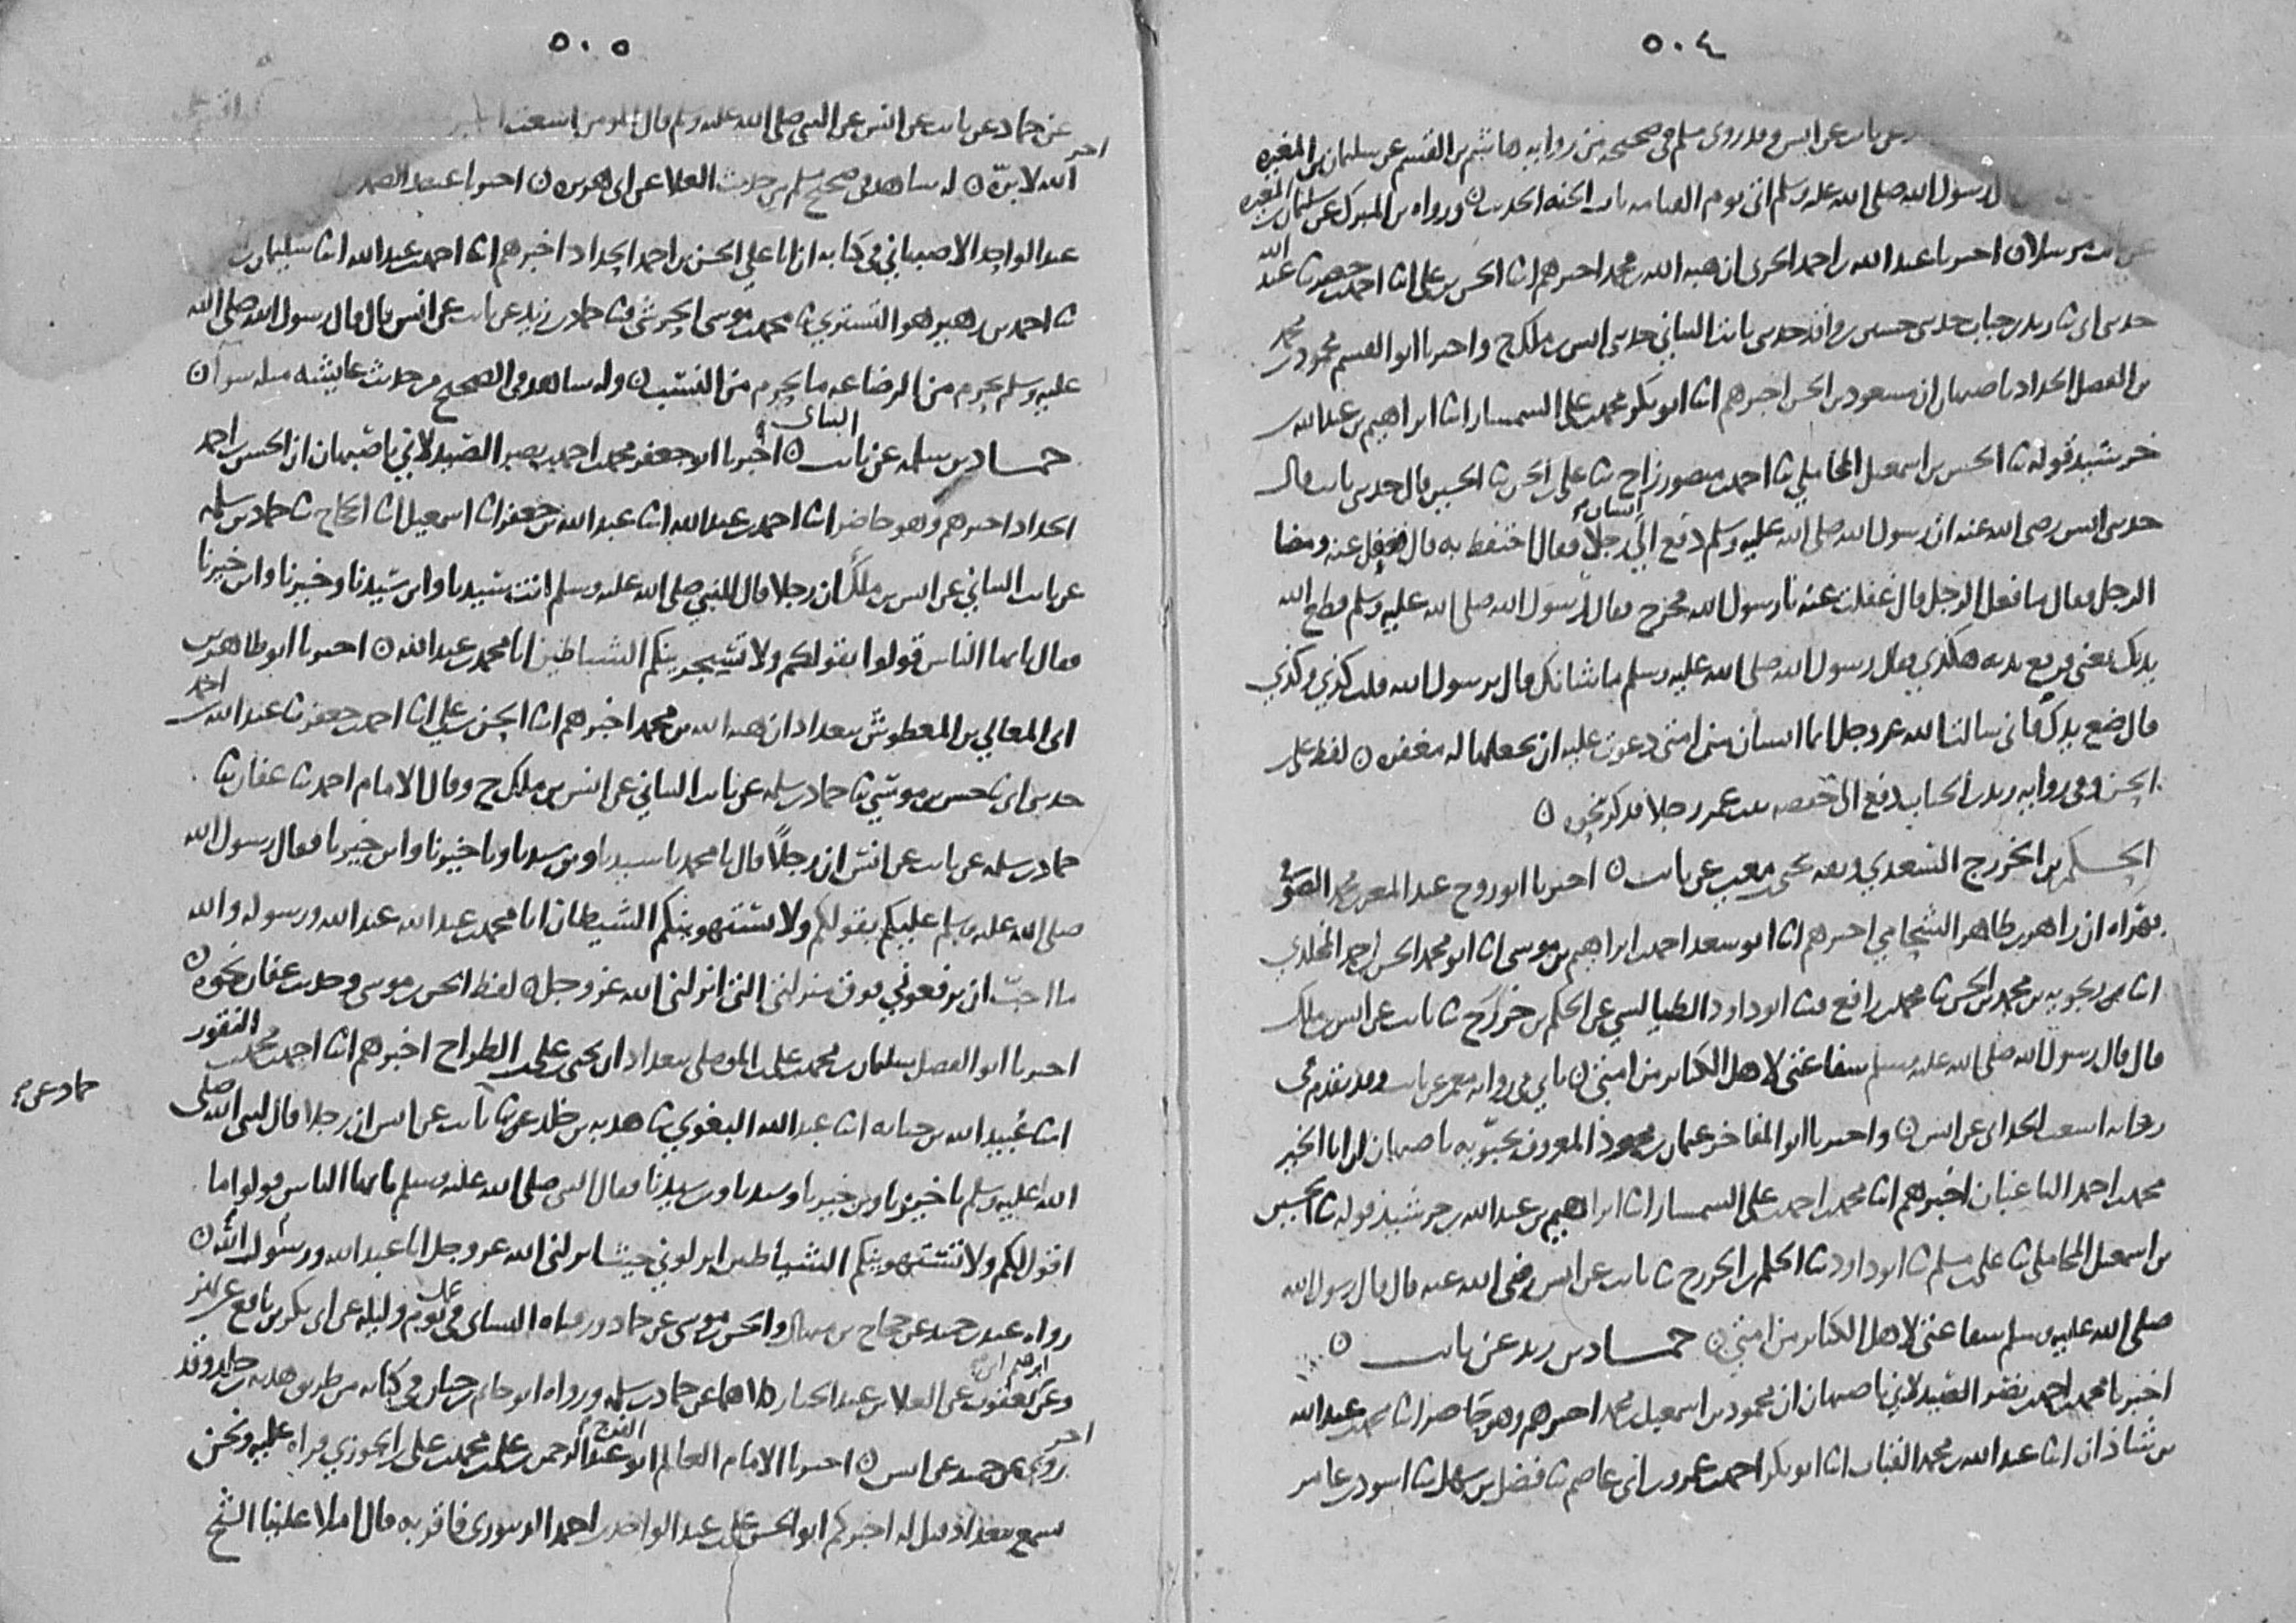 ٥٠٤
ثابت عن انس وقد روى مسلم في صحيحه من رواية هاشم بن القسم عن سليمان بن المغيره
رسول الله صلى الله عليه وسلم اتى يوم القيامه باب الجنه الحديث ورواه بن المبرك عن سليمان بن المغيره
عن ثابت مرسلا ن اخبرنا عبد الله بن احمد الحربي ان هبه الله بن محمد اخبرهم ابنا الحسن بن علي ابنا احمد بن جعفر ثنا عبد الله
حدثني ابي ثنا زيد بن حباب حدثني حسين بن واقد حدثني ثابت البناني حدثني انس بن ملك ح واخبرنا ابو القسم محمود بن محمد
بن الفضل الحداد باصبهان ان مسعود بن الحسن اخبرهم ابنا ابو بكر محمد بن علي السمسار ابنا ابراهيم بن عبد الله بن
خرشيد قوله ثنا الحسين بن اسمعيل المحاملي ثنا احمد بن منصور زاج ثنا علي بن الحسن ثنا الحسين قال حدثني ثابت قال
حدثني انس رضي الله عنه ان رسول الله صلى الله عليه وسلم دفع الى انسان رجلا فقال احتفظ به قال فغفل عنه ومضا
الرجل فقال ما فعل الرجل قال غفلت عنه يا رسول الله فخرج فقال رسول الله صلى الله عليه وسلم قطع الله
يدك يعني فرفع يديه هكذى فقال رسول الله صلى الله عليه وسلم ما شانك قال يرسول الله قلت كذى وكذى
قال ضع يدك فاني سالت الله عز وجل ايما انسان من امتي دعوت عليه ان يجعلها له مغفره ن لفظ علي بن
الحسن وفي رواية زيد بن الحباب دفع الى حفصه بنت عمر رجلا فذكر نحوه ن
الحكم بن الخزرج السعدي عن ثابت ن اخبرنا ابو روح عبد المعز بن محمد الصوفي
بهراه ان زاهر بن طاهر الشحامي اخبرهم ابنا ابو سعد احمد بن ابراهيم بن موسى ابنا ابو محمد الحسن بن احمد المخلدي
ابنا بن محمد بن الحسن ثنا محمد بن رافع ثنا ابو داود الطيالسي عن الحكم بن خزرج ثنا ثابت عن انس بن ملك
قال قال رسول الله صلى الله عليه وسلم شفاعتي لاهل الكبائر من امتي ن ياتي في رواية معمر عن ثابت وقد تقدم في
رواية اشعث الحداني عن انس ن واخبرنا ابو المفاخر عثمان بن محمود المعروف باصبهان ان ابا الخير
محمد بن احمد الباغبان اخبرهم ابنا محمد بن احمد بن علي السمسار ابنا ابراهيم بن عبد الله بن خرشيذ قوله ثنا الحسين
بن اسمعيل المحاملي ثنا علي بن مسلم ثنا ابو داود ثنا الحكم بن الخزرج ثنا ثابت عن انس رضي الله عنه قال قال رسول الله
صلى الله عليه وسلم شفاعتي لاهل الكبائر من امتي ن حماد بن زيد عن ثابت ن
اخبرنا محمد بن احمد بن نصر الصيدلاني باصبهان ان محمود بن اسمعيل بن محمد اخبرهم وهو حاضر ابنا محمد بن عبد الله
بن شاذان ابنا عبد الله بن محمد القباب ابنا ابو بكر احمد بن عمرو بن ابي عاصم ثنا فضل بن سهل ثنا اسود بن عامر
٥٠٥
عن حماد عن ثابت عن انس عن النبي صلى الله عليه وسلم قال
الله لابره ن له شاهد في صحيح مسلم من حديث العلا عن ابي هريره ن اخر اخبرنا عبد الصمد
عبد الواحد الاصبهاني في كتابه ان ابا علي الحسن بن احمد الحداد اخبرهم ابنا احمد بن عبد الله ابنا سليمان بن
ثنا احمد بن زهير هو التستري ثنا محمد بن موسى الحرشي ثنا حماد بن زيد عن ثابت عن انس قال قال رسول الله صلى الله
عليه وسلم يحرم من الرضاعه ما يحرم من النسب ن وله شاهد في الصحيح من حديث عايشه مثله سوا ن
حماد بن سلمه عن ثابت البناني ن اخبرنا ابو جعفر محمد بن احمد بن نصر الصيدلاني باصبهان ان الحسن بن احمد
الحداد اخبرهم وهو حاضر ابنا احمد بن عبد الله ابنا عبد الله بن جعفر ابنا اسمعيل ثنا الحجاج ثنا حماد بن سلمه
عن ثابت البناني عن انس بن ملك ان رجلا قال للنبي صلى الله عليه وسلم انت سيدنا وابن سيدنا وخيرنا وابن خيرنا
فقال يا ايها الناس قولوا بقولكم ولا يستجرينكم الشياطين انا محمد بن عبد الله ن اخبرنا ابو طاهر بن
ابي المعالي بن المعطوش ببغداد ان هبه الله بن محمد اخبرهم ابنا الحسن بن علي ابنا احمد بن جعفر ثنا عبد الله بن احمد
حدثني ابي ثنا حسن بن موسى ثنا حماد بن سلمه عن ثابت البناني عن انس بن ملك ح وقال الامام احمد ثنا عفان ثنا
حماد بن سلمه عن ثابت عن انس ان رجلا قال يا محمد يا سيدنا وبن سيدنا ويا خيرنا وابن خيرنا فقال رسول الله
صلى الله عليه وسلم عليكم بقولكم ولا يستهوينكم الشيطان انا محمد بن عبد الله عبد الله ورسوله والله
ما احب ان ترفعوني فوق منزلتي التي انزلني الله عز وجل ن لفظ الحسن بن موسى وحديث عفان نحوه ن
اخبرنا ابو الفضل سليمان بن محمد بن علي الموصلي ببغداد ان يحيى بن علي بن الطراح اخبرهم ابنا احمد بن محمد بن النقور
ابنا عبيد الله بن حبابه ابنا عبد الله البغوي ثنا هدبه بن خلد عن حماد عن ثابت عن انس ان رجلا قال لنبي الله صلى
الله عليه وسلم يا خيرنا وبن خيرنا وسيدنا وبن سيدنا فقال النبي صلى الله عليه وسلم يا ايها الناس قولوا ما
اقول لكم ولا يستهوينكم الشياطين انزلوني حيث انزلني الله عز وجل انا عبد الله ورسول الله ن
رواه عبد بن حميد عن حجاج بن منهال والحسن بن موسى عن حماد ورواه النساى في عمل يوم وليله عن ابي بكر بن نافع عن بهز
وعن ابرهيم بن يعقوب عن العلا بن عبد الجبار كلاهما عن حماد بن سلمه ورواه ابو حاتم بن حبان في كتابه من طريق هدبه بن خالد وقد
روي عن حميد عن انس ن اخر اخبرنا الامام العالم ابو الفرج عبد الرحمن بن علي بن محمد بن علي بن الجوزي قراه عليه ونحن
نسمع ببغداد قيل له اخبركم ابو الحسن علي بن عبد الواحد بن احمد الدينوري فاقر به قال املا علينا الشيخ
حماد عن